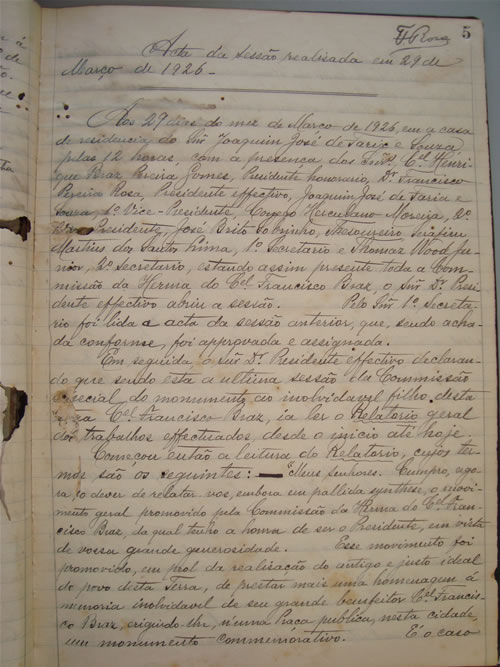 F Rosa
5
Acta da sessão realisada em 29 de
Março de 1926 –
Aos 29 dias do mez de Março de 1926, em a casa
de residencia do Snr Joaquim José de Faria e Souza
pelas 12 horas, com a presença dos Snrs Cel Henri-
que Braz Pereira Gomes, Presidente honorario, Dr Francisco
Pereira Rosa, Presidente effectivo, Joaquim José de Faria e
Souza, 1º Vice-Presidente, Conego Herculano Moreira, 2º
Presidente, José Brito Sobrinho, Thesoureiro Serafim
Martins dos Santos Lima, 1º Secretario e Thomaz Wood Ju-
nior, 2º Secretario, estando assim presente toda a Com-
missão da Herma do Cel Francisco Braz, o Snr Dr Presi-
dente effectivo abriu a sessão. Pelo Snr 1º Secreta-
rio foi lida a acta da sessão anterior, que, sendo acha-
da conforme, foi approvada e assignada.
Em seguida o Snr Dr Presidente effectivo declaran-
do que sendo esta a ultima sessão da Commissão
especial do monumento ao inolvidavel filho desta
Cel. Francisco Braz, ia ler o Relatorio geral
dos trabalhos effectuados, desde o inicio até hoje
Começou então a leitura do Relatorio, cujos ter-
mos são os seguintes: — "Meus senhores. Cumpro, ago-
ra, o dever de relatar-vos, embora em pallida synthese, o movi-
mento geral promovido pela Commissão da Herma do Cel. Fran-
cisco Braz, da qual tenho a honra de ser o Presidente, em vista
de vossa grande generosidade. Esse movimento foi
promovido, em prol da realisação do antigo e justo ideal
do povo desta Terra, de prestar mais uma homenagem á
memoria inolvidavel de seu grande bemfeitor Cel Francis-
co Braz, erigindo-lhe, n'uma Praça publica, nesta cidade,
um monumento commemorativo. E o caso